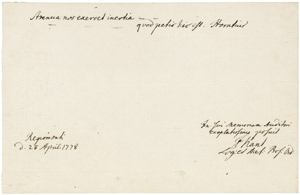 Strenua nos exercet inertia
quod petis hic est. Horatius
In sui memoriam Auditori
posuit
I Kant
Log et Met Prof Ord
Regiomonti
d. 28 April 1778